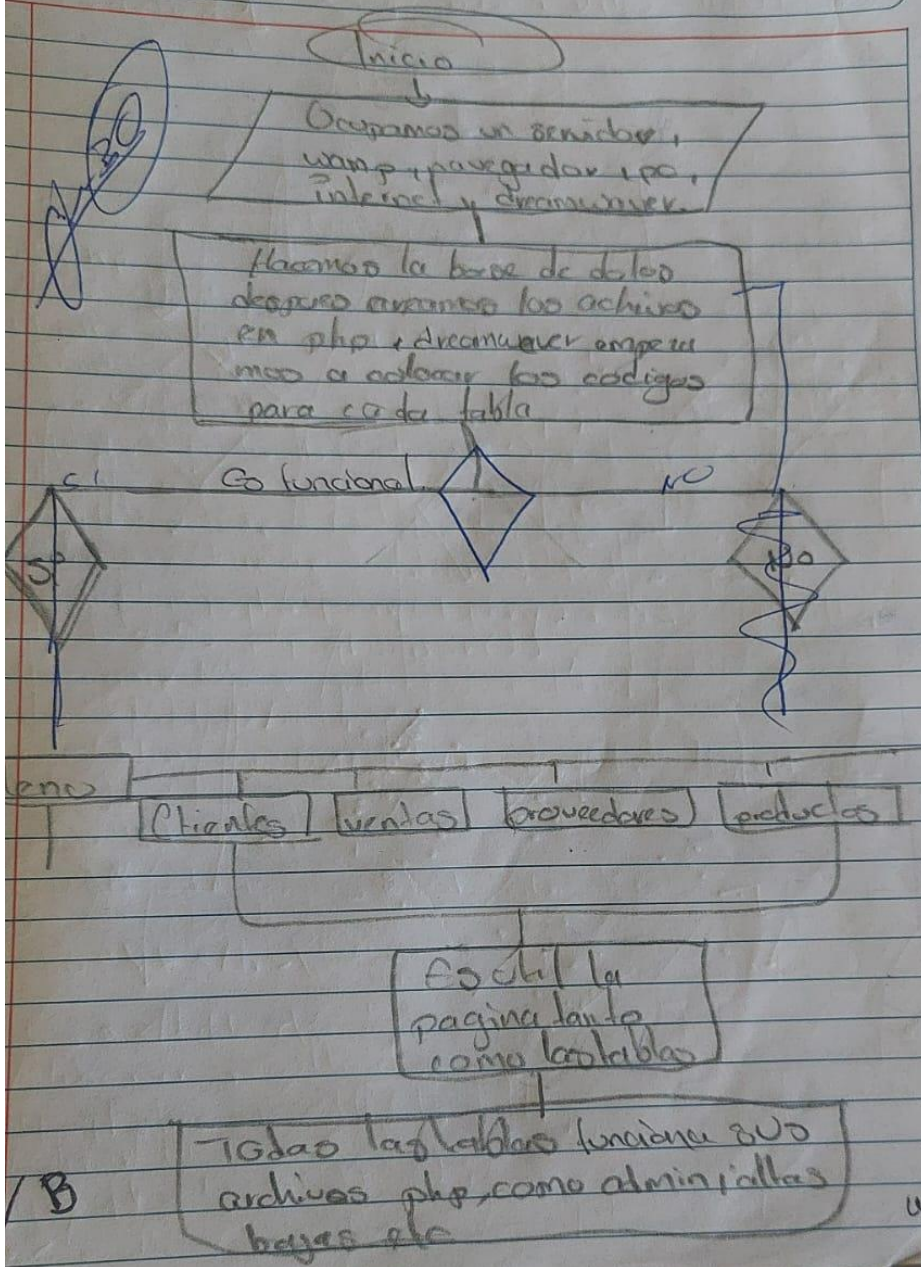 Inicio
80
Ocupamos un servidor,
wamp, navegador, pc,
internet y dreamweaver.
Hacemos la base de datos
despues los achivos
en php, dreamweaver empeza
mos a colocar los codigos
para cada tabla
Es funcional
NO
SI
NO
enu
Clientes ventas proveedores productos
Es util la
pagina tanto
como las tablas
Todas las tablas funciona sus
archivos php, como admin, altas
bajas etc
B